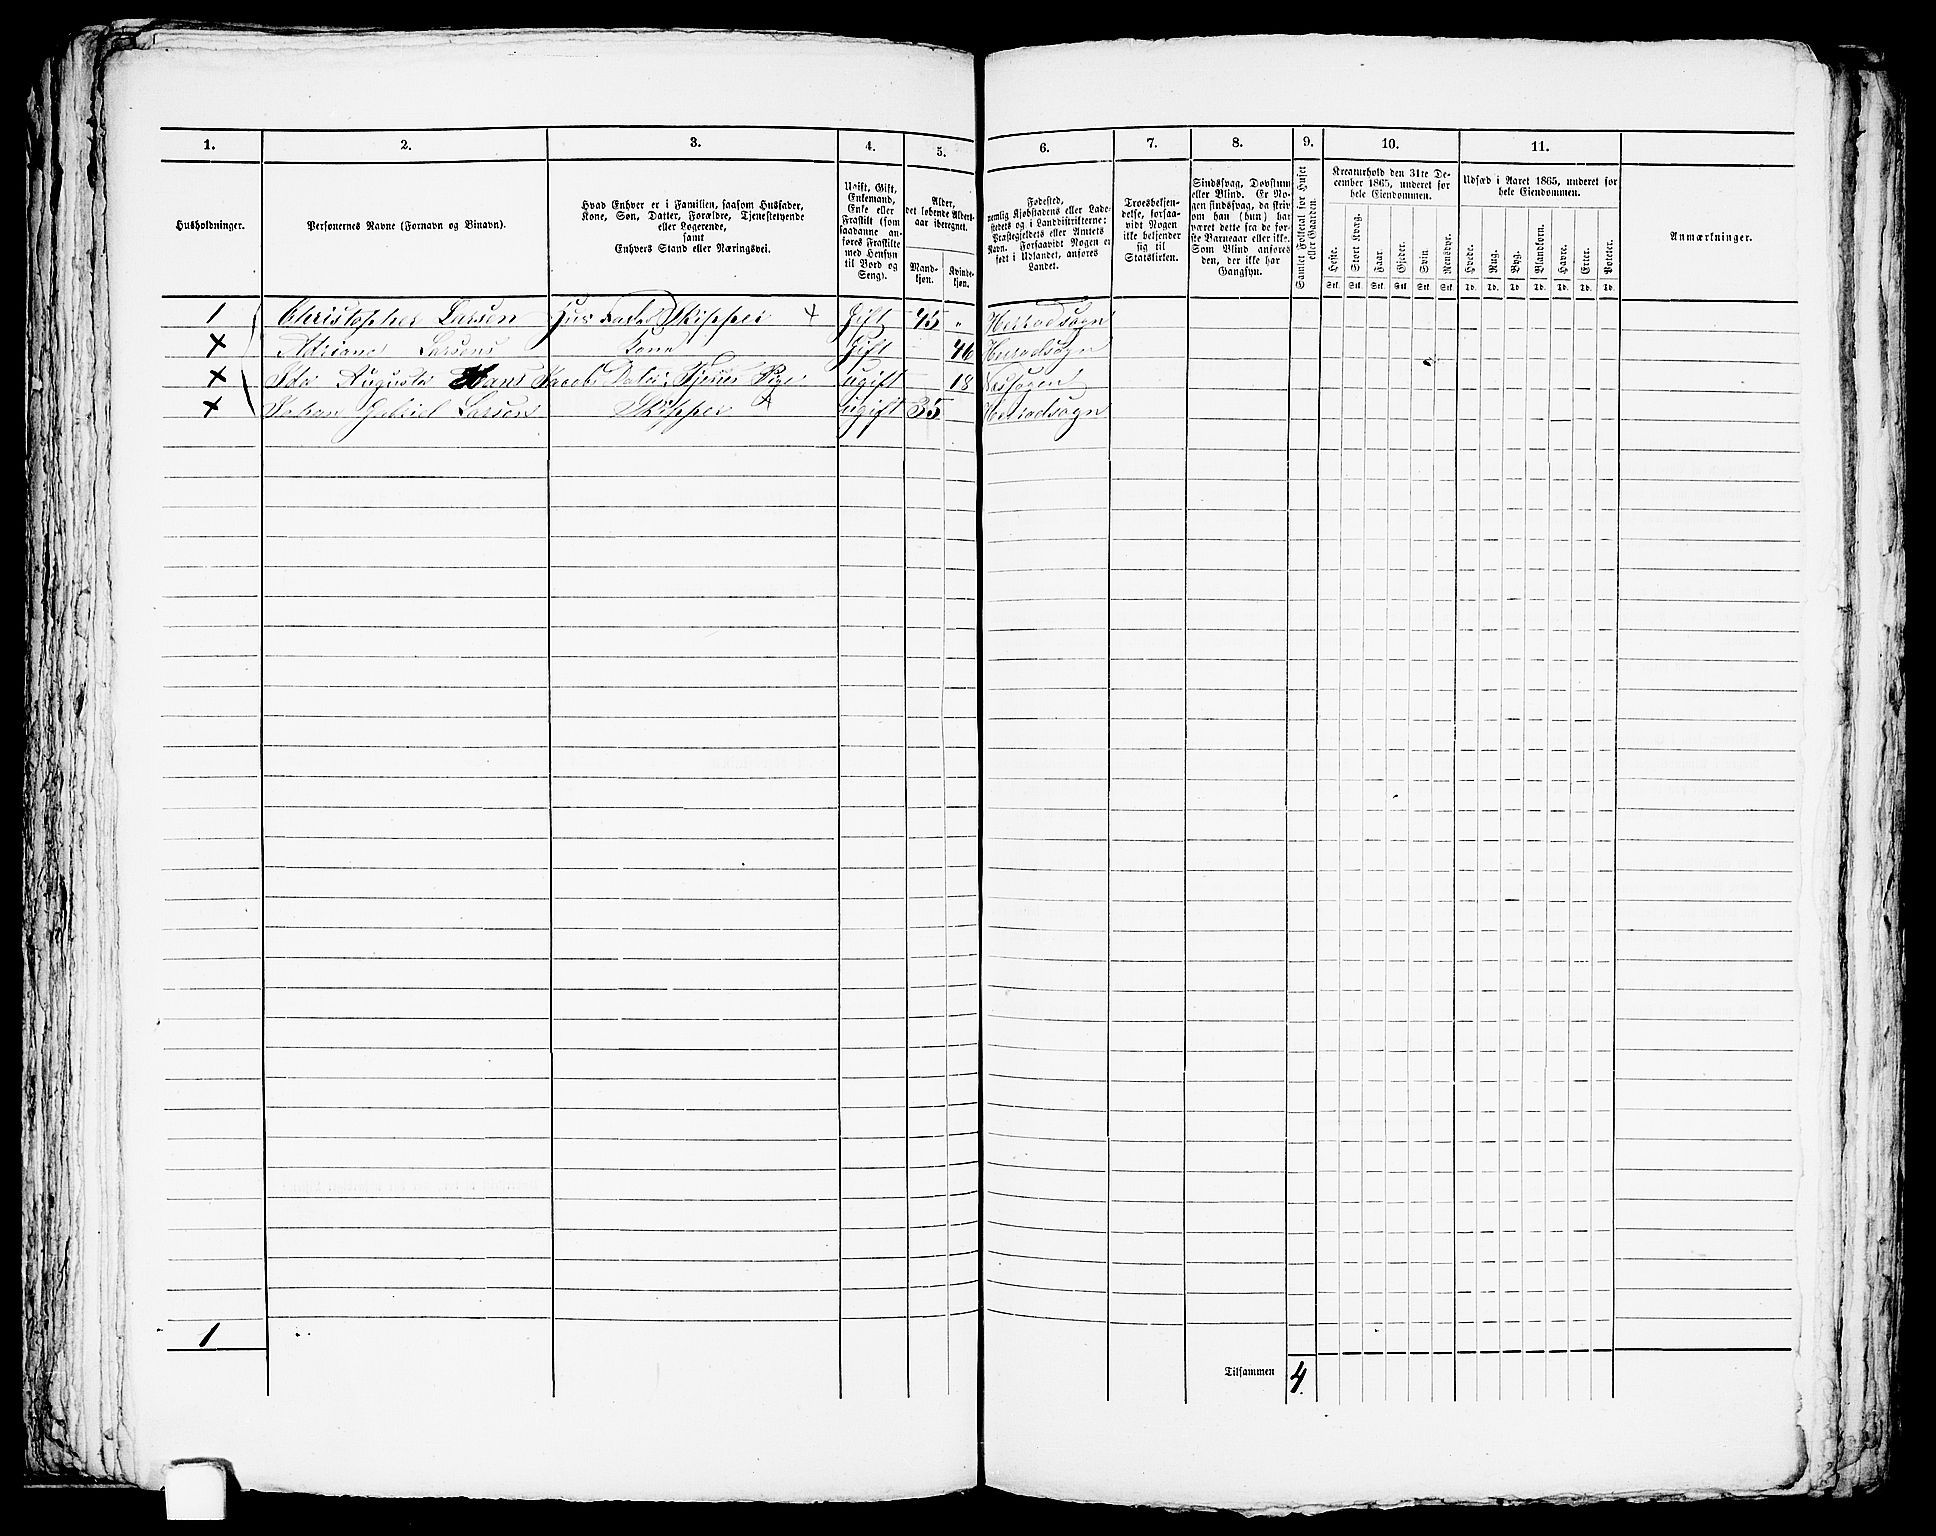 1. 2. 3. 4. 5. 6. 7. 8. 9. 10. 11.
Husholdninger.
Personernes Navne (Fornavn og Binavn).
Hvad Enhver er i Familien, saasom Husfader,
Kone, Søn, Datter, Forældre, Tjenestetyende
eller Logerende,
samt
Enhvers Stand eller Næringsvei.
Ugift, Gift,
Enkemand,
Enke eller
Fraskilt (som
saadanne an-
føres Fraskilte
med Hensyn
til Bord og
Seng).
Alder,
det løbende Alders-
aar iberegnet.
Mand-
kjøn.
Kvinde-
kjøn.
Fødested,
nemlig Kjøbstadens eller Lade-
stedets og i Landdistrikterne:
Præstegjeldets eller Amtets
Navn. Forsaavidt Nogen er
født i Udlandet, anføres
Landet.
Troesbekjen-
delse, forsaa-
vidt Nogen
ikke bekjender
sig til
Statskirken.
Sindssvag, Døvstum
eller Blind. Er No-
gen sindssvag, da skriv
om han (hun) har
været dette fra de før-
ste Barneaar eller ikke.
Som Blind anføres
den, der ikke har
Gangsyn.
Samlet Folketal for Huset
eller Gaarden.
Kreaturhold den 31te De-
cember 1865, underet for
hele Eiendommen.
Heste. Stort Kvæg. Faar. Gjeder. Svin. Rensdyr.
Stk. Stk. Stk. Stk. Stk. Stk.
Udsæd i Aaret 1865, underet for
hele Eiendommen.
Hvede. Rug. Byg. Blandkorn. Havre. Erter. Poteter.
Td. Td. Td. Td. Td. Td. Td.
Anmærkninger.
1 Christopher Larsen Huusfader Skipper + Gift 45 " Herrad sogn
x Adriane Larsens Kone Gift 46 Herradsogn
x Ida Augusta Hans Jacobs Dater Tjenes Pige ugift 18
x Johan Gabriel Larsen Skipper x Ugift 35 Herradsogn
1
Tilsammen 4.